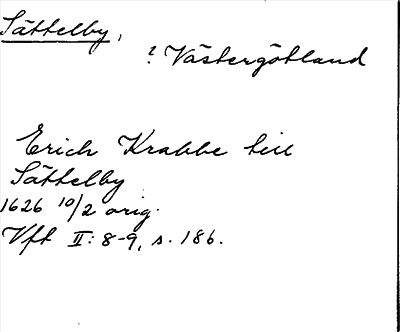 Sättelby,
? Västergötland
Erich Krabbe till
Sättelby
1626 10/2 orig.
Vft II: 8-9, s. 186.